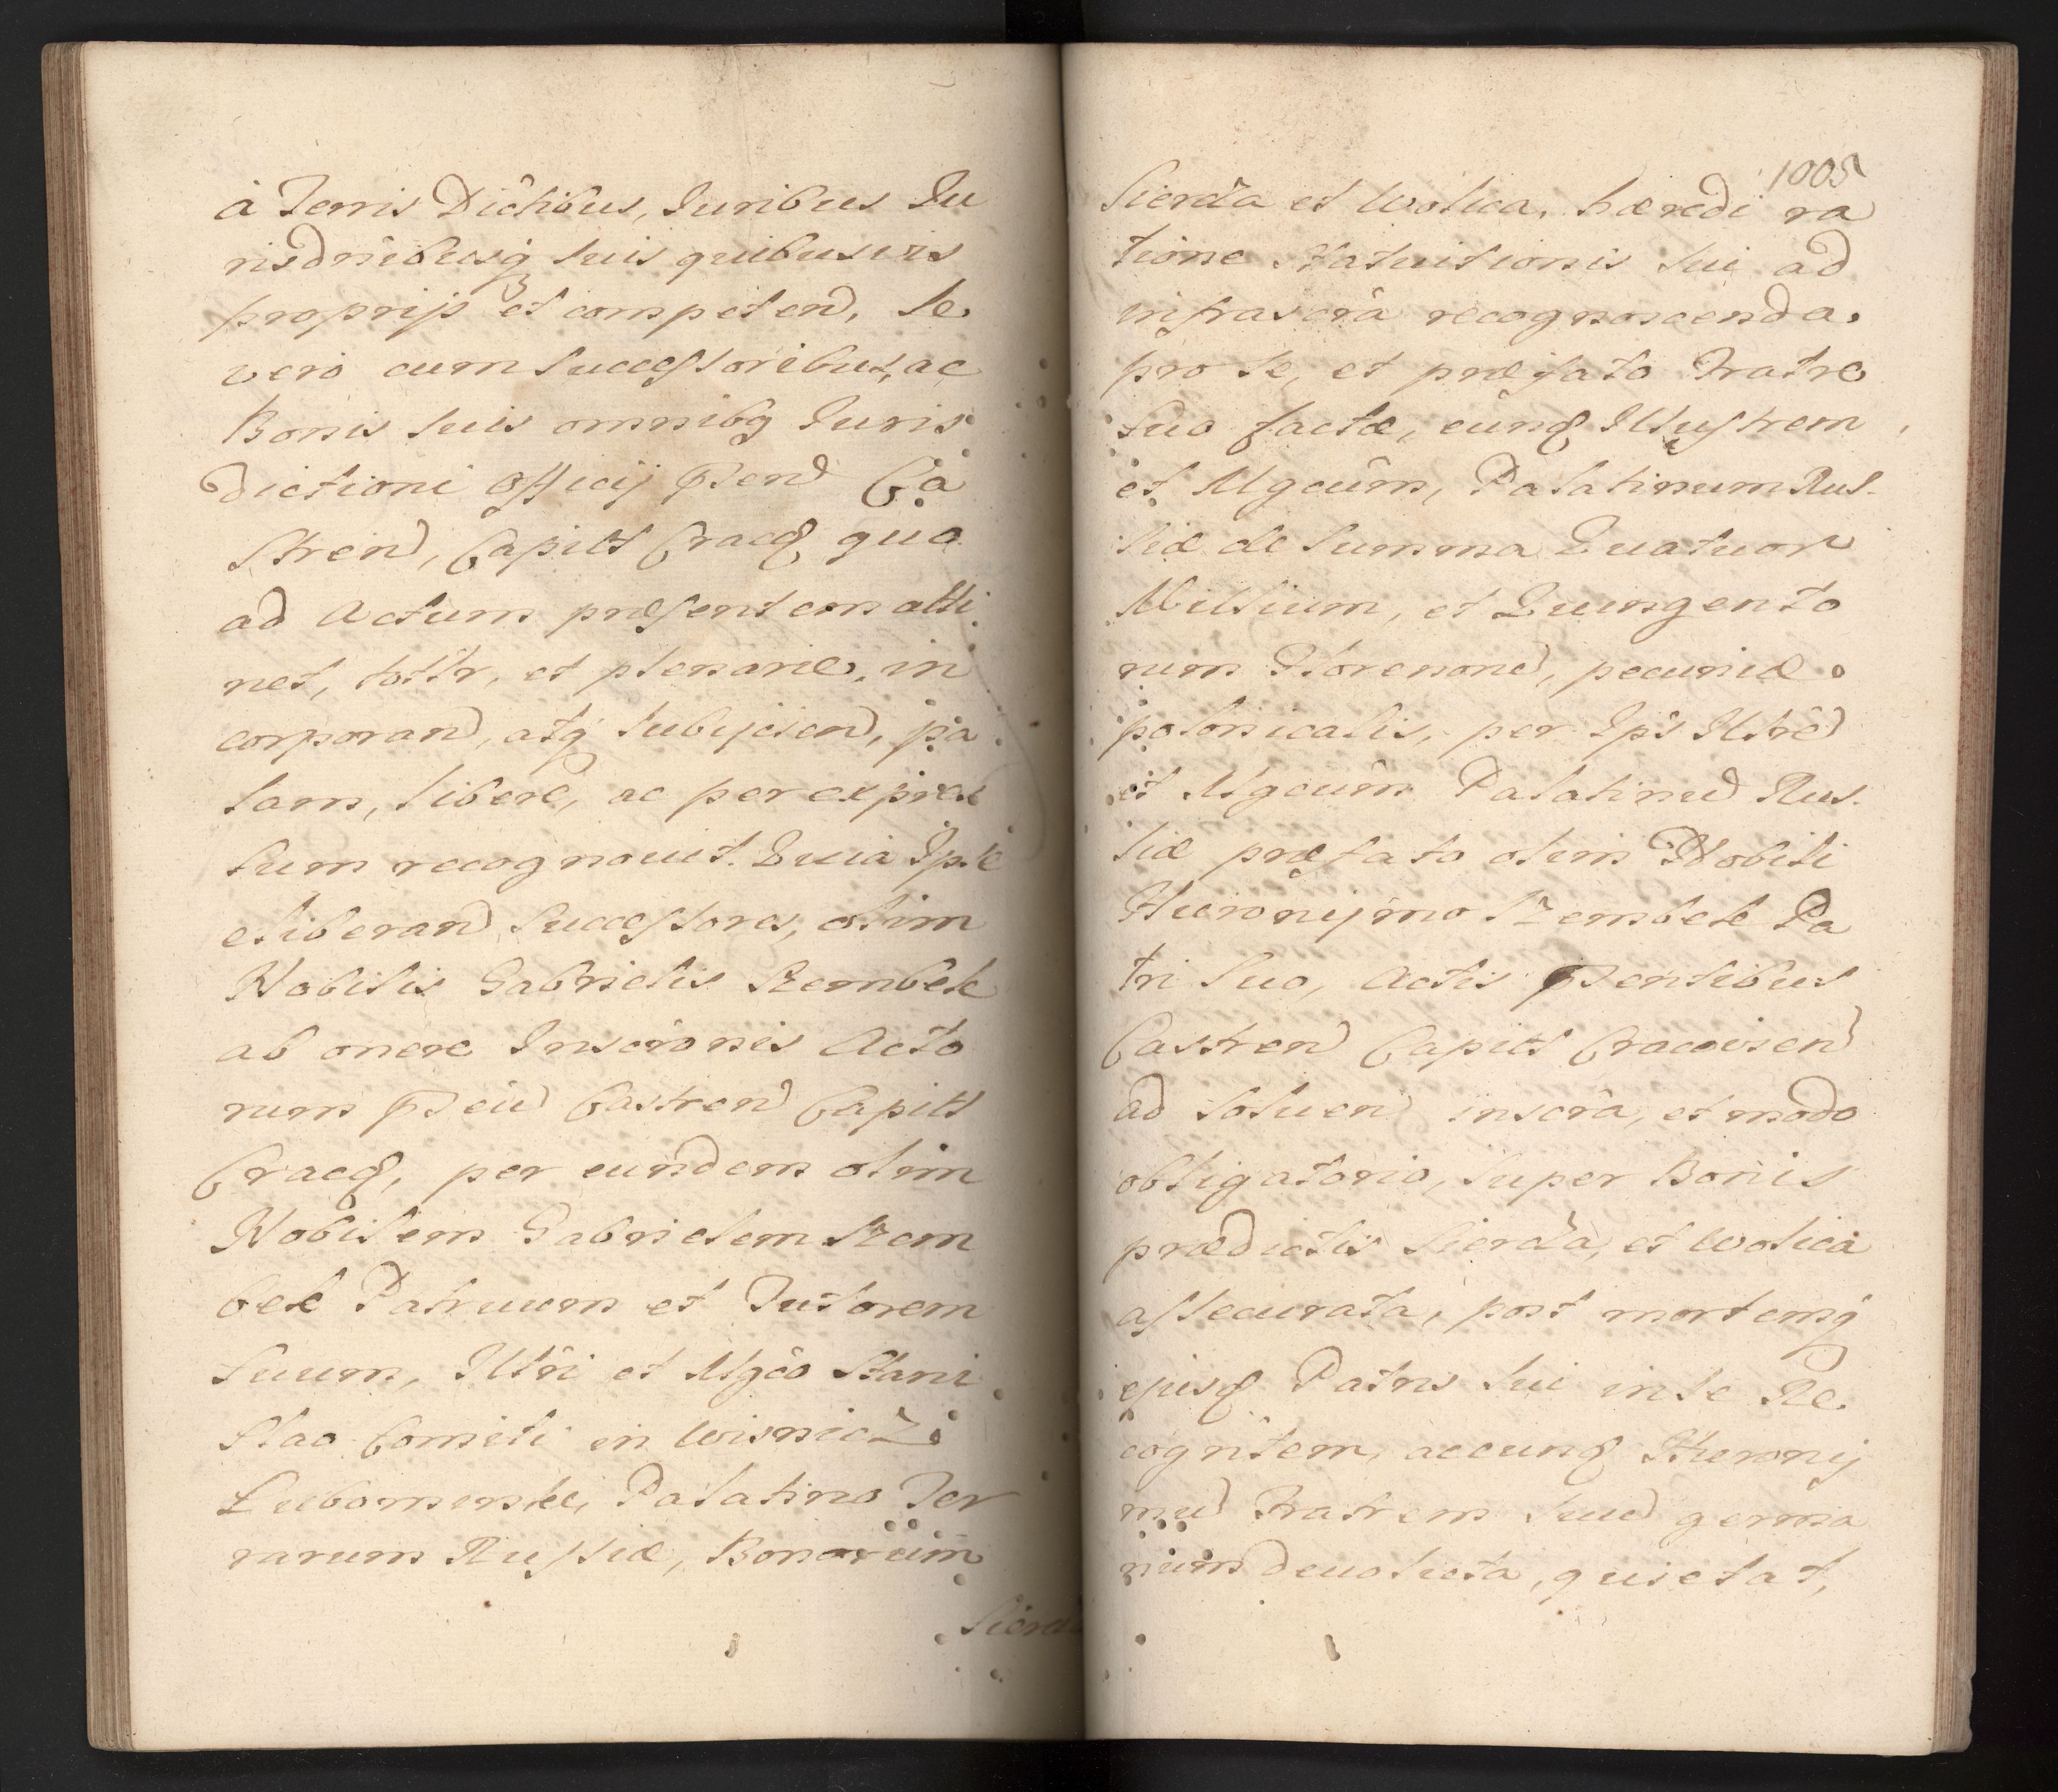 à Terris Dictibus, Juribus Ju
risdnibusq suis quibusvis
proprijs et competen, se
vero cum Successoribus, ac
Bonis suis omnibq Juris
dictioni Officij Pen Ca
stren, Capitl Crac quo
ad Actum præsentem atti
net, tottr, et plenarie, in
corporan, atq subijcien, pa
lam, libere, ac per expres
sum recognovit. Quia Ipse
eliberan Successores, olim
Nobilis Gabrielis Szembek
ab onere Inscronis Acto
rum Castren Capitl
Crac, per eundem olim
Nobilem Gabrielem Szem
bek Patruum et Tutorem
Suum, Illri et Mgco Stani
slao Comiti in Wisnicz
Lubomirski, Palatino Ter
rarum Russiæ, Bonorum
Siercza
1005
Siercza et Wolica, hæredi ra
tione statuitionis sui ad
infrascra recognoscenda
pro se, et præfato Fratre
suo factæ, eunq Illustrem
et Mgcum, Palatinum Rus
siæ de Summa Quatuor
Millium, et Quingento
rum Florenon, pecuniæ
polonicalis, per Ips Illre
et Mgcum Palatinu Rus
siæ præfato olim Nobili
Hieronymo Szembek Pa
tri suo, Actis Pentibus
Castren Capitl Cracovien
ad solven inscra, et modo
obligatorio, super Bonis
prædictis Siercza, et Wolica
assecurata, post mortemq
ejusq Patris sui in se Re
cogntem, ac eunq Hierony
mu Fratrem suu germa
num devoluta, quietat,